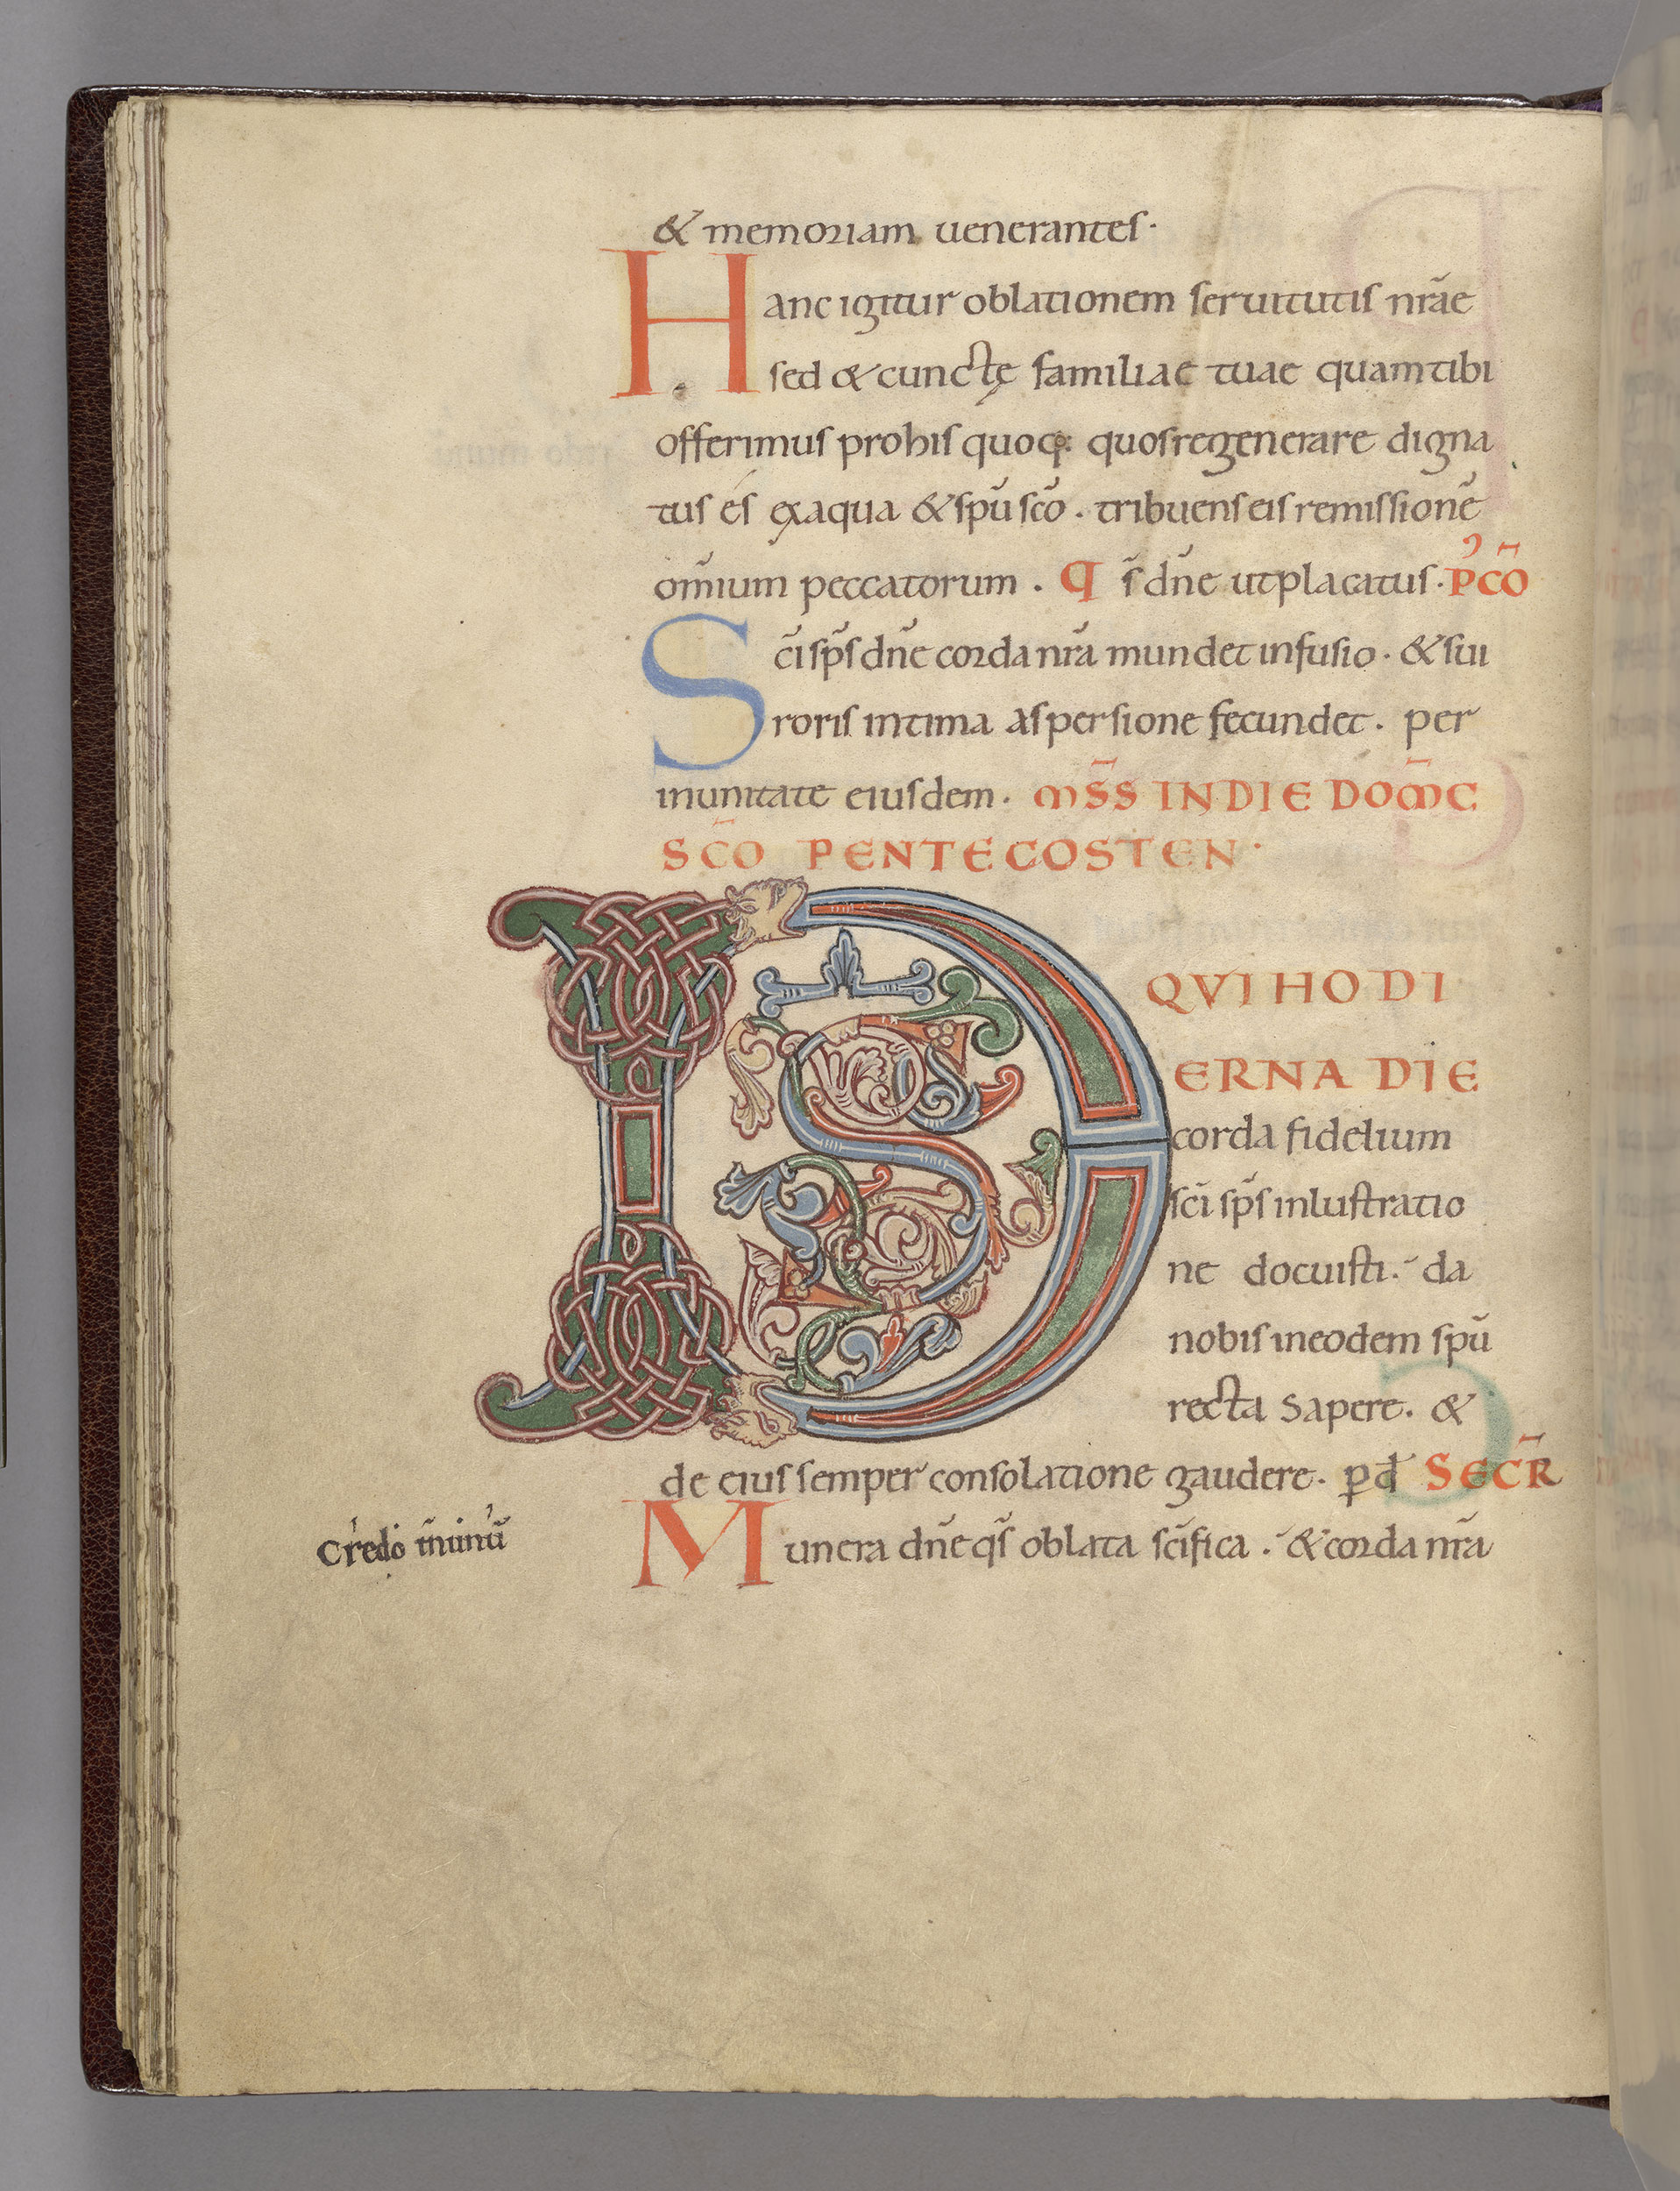 & memoriam uenerantes·
Hanc igitur oblationem seruitutis nr̃ae
sed & cunctę familiae tuae quam tibi
offerimus pro his quoq: quos regenerare digna
tus es ex aqua & spũ scõ . tribuens eis remissionẽ
om̃ium peccatorum . q s̃ dñe ut placatus· PCÕ
Sc̃i sp̃s dñe corda nr̃a mundet infusio · & sui
roris intima aspersione fecundet . per
inunitate eiusdem · MS̃S IN DIE DOM̃C
SC̃O PENTECOSTEN·
DS QVI HODI
ERNA DIE
corda fidelium
sc̃i sp̃s inlustratio
ne docuisti . da
nobis in eodem spũ
recta sapere . &
de eius semper consolatione gaudere . p d SECR̃
Munera dñe qs̃ oblata sc̃ifica . & corda nr̃a
Credo in unũ